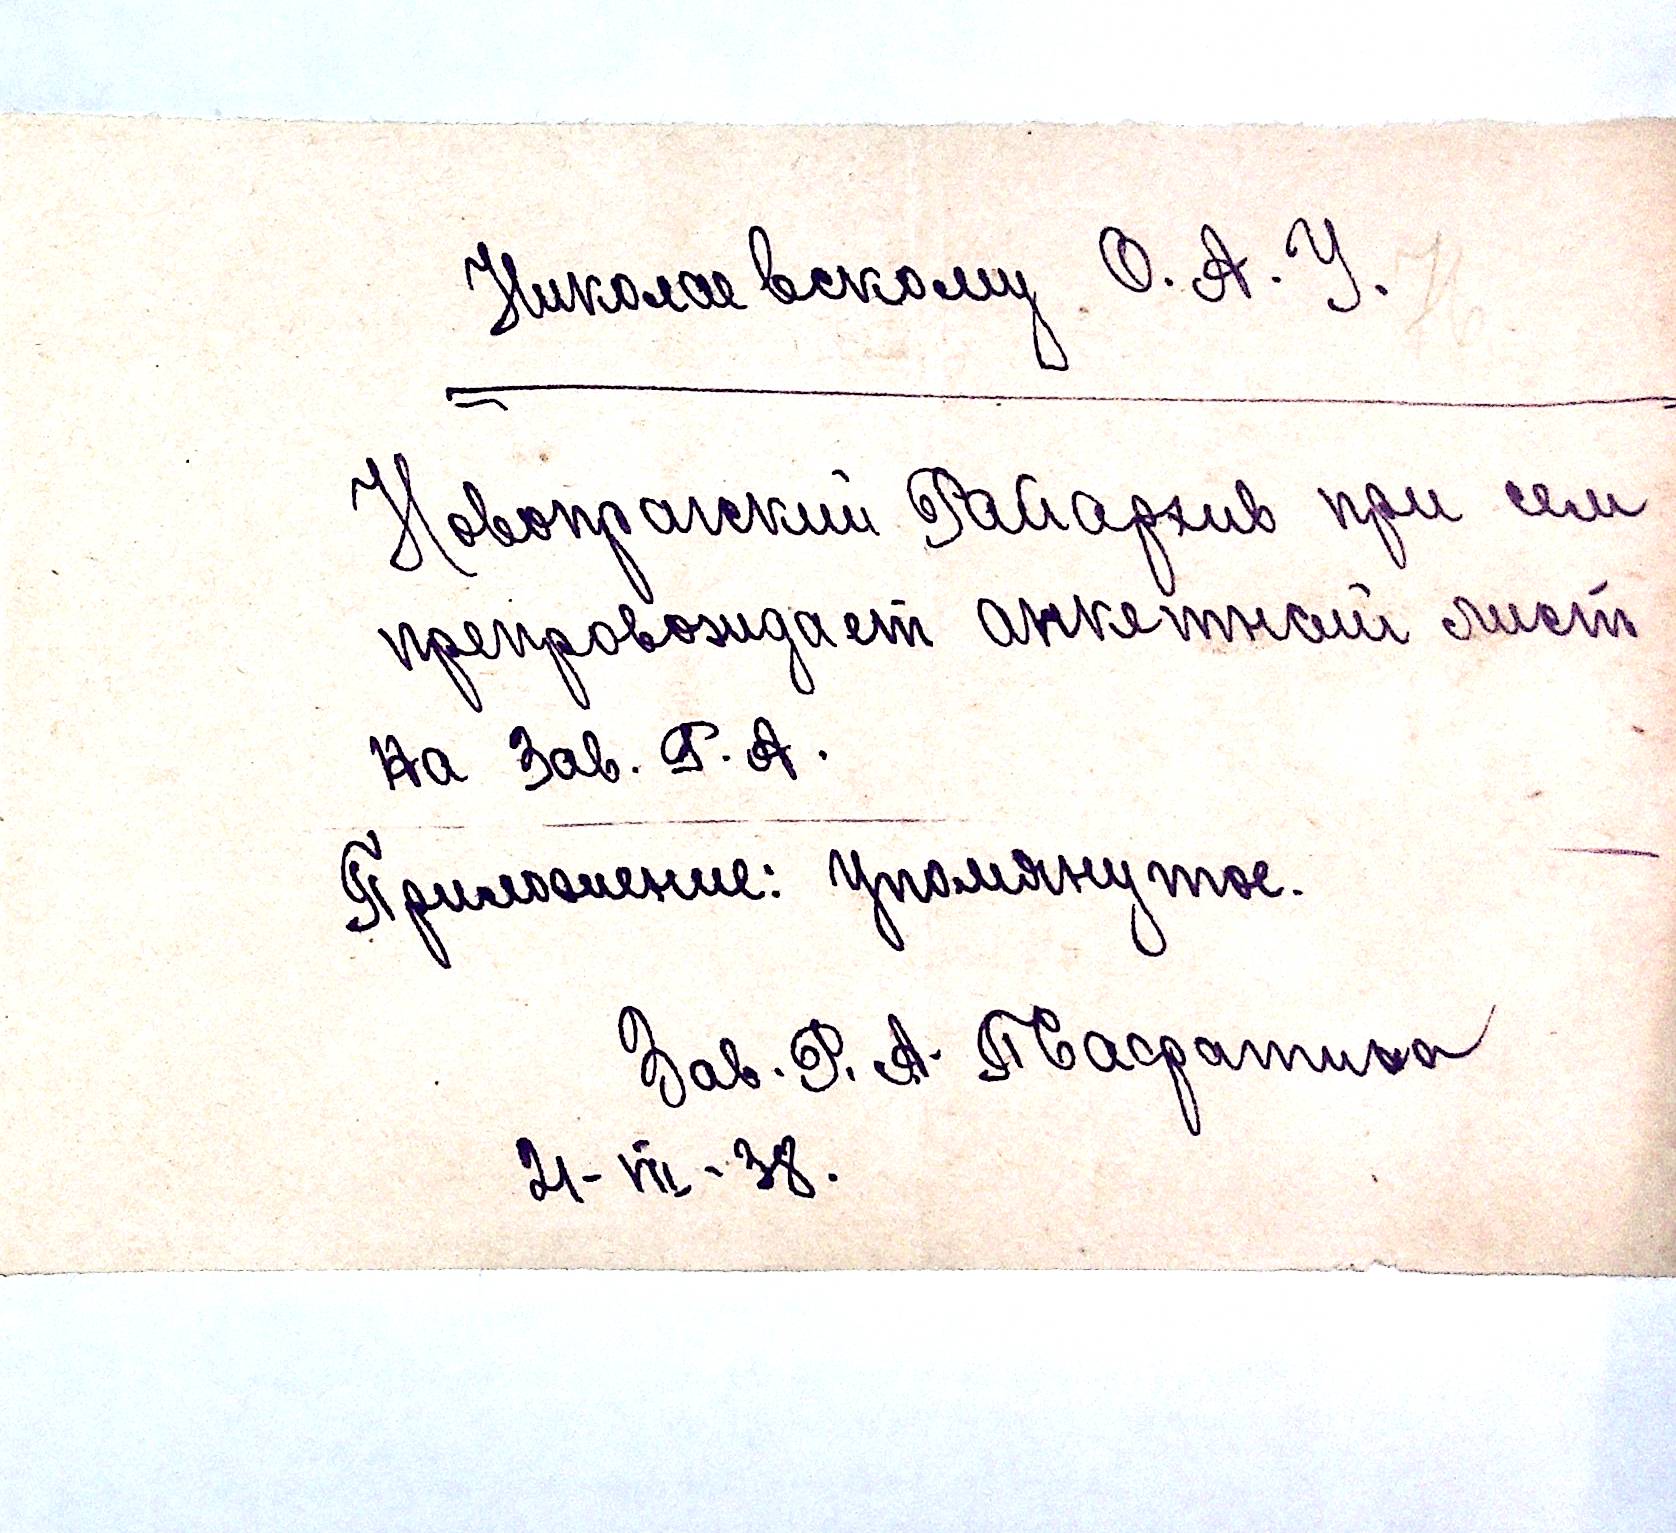 Николаевскому О. А. У.
Новопражский РайАрхив при сем
препровождает анкетный лист
на Зав. Р. А.
Приложение: упомянутое.
Зав. Р. А.
21-VII-38.